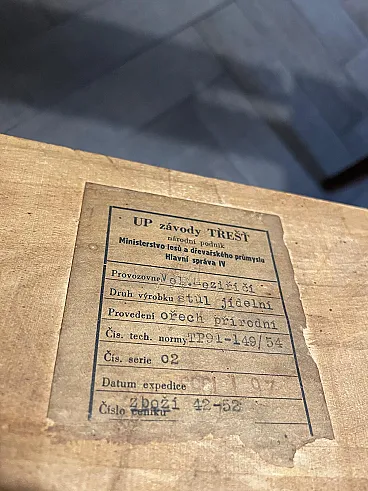 UP závody TŘEŠŤ
národní podnik
Ministerstvo lesů a dřevařského průmyslu
Hlavní správa IV
Provozovna Vel.Meziříčí
Druh výrobku stůl jídelní
Provedení ořech přírodní
Čís. tech. normy TP91-149/54
Čís. serie 02
Datum expedice
Číslo ceníku zboží 42-52